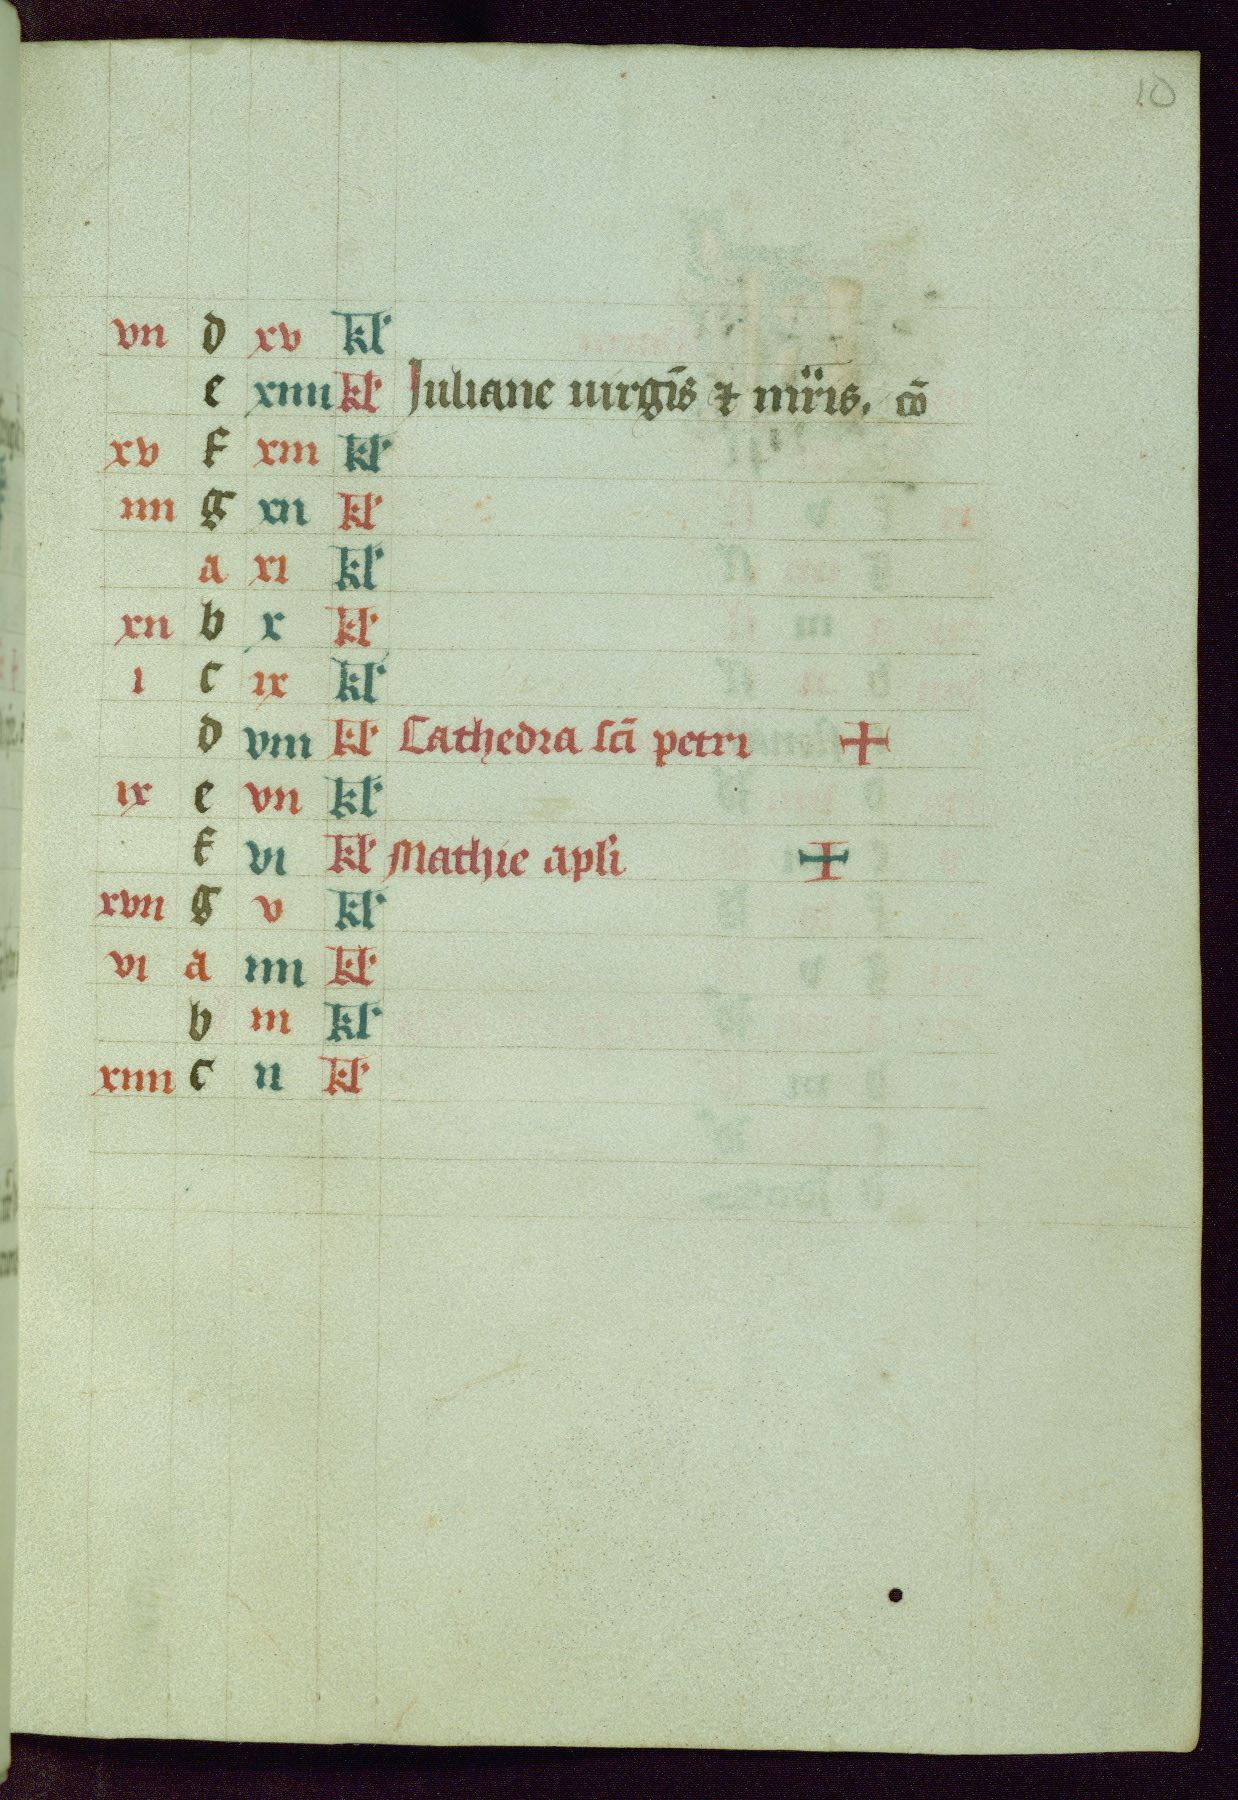 10
vii d xv kl
e xiiii kl Juliane uirgīs ⁊ mr̈is. cō
xv f xiii kl
iiii g xii kl
a xi kl
xii b x kl
i c ix kl
d viii kl Cathedra scī petri ✠
ix e vii kl
f vi kl Mathie apli ✠
xvii g v kl
vi a iiii kl
b iii kl
xiiii c ii kl